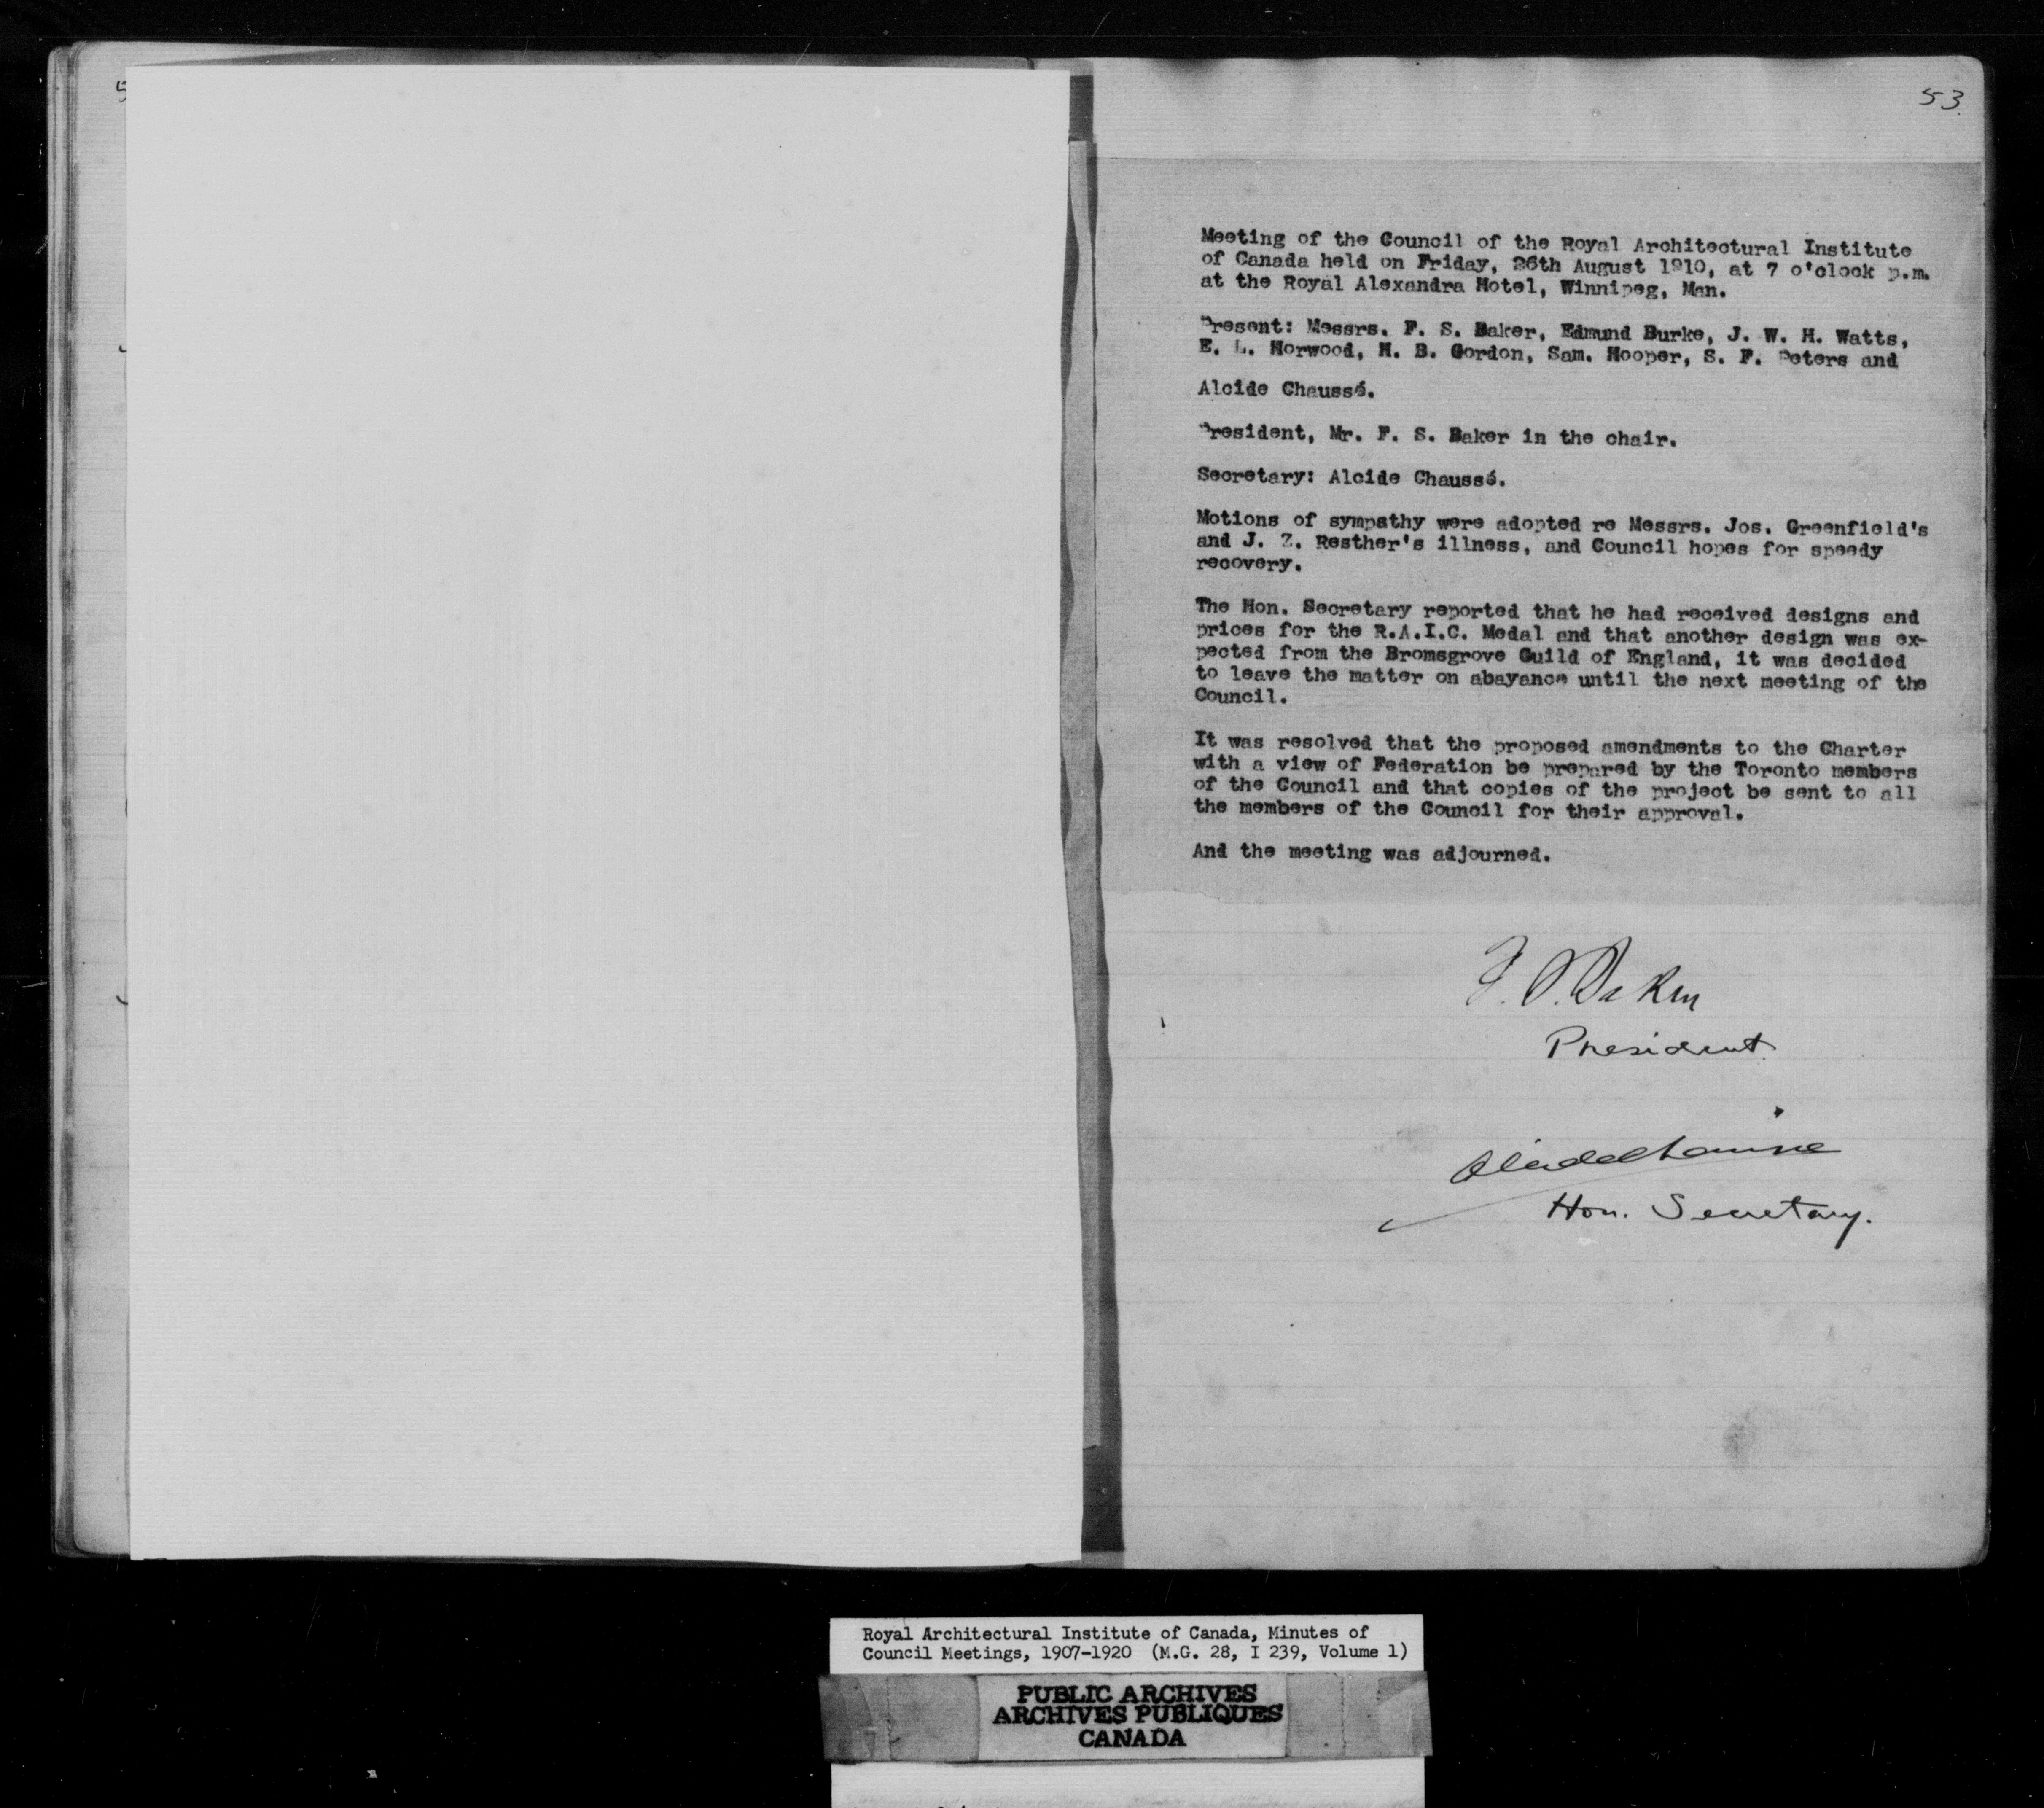 5
53
Meeting of the Council of the Royal Architectural Institute
of Canada held on Friday, 26th August 1910, at 7 o'clock p.m.
at the Royal Alexandra Hotel, Winnipeg, Man.
Present: Messrs. F. S. Baker, Edmund Burke, J. W. H. Watts,
E. L. Horwood, H. B. Gordon, Sam. Hooper, S. F. Peters and
Alcide Chaussé.
President, Mr. F. S. Baker in the chair.
Secretary: Alcide Chaussé.
Motions of sympathy were adopted re Messrs. Jos. Greenfield's
and J. Z. Resther's illness, and Council hopes for speedy
recovery.
The Hon. Secretary reported that he had received designs and
prices for the R.A.I.C. Medal and that another design was ex-
pected from the Bromsgrove Guild of England, it was decided
to leave the matter on abayance until the next meeting of the
Council.
It was resolved that the proposed amendments to the Charter
with a view of Federation be prepared by the Toronto members
of the Council and that copies of the project be sent to all
the members of the Council for their approval.
And the meeting was adjourned.
F. S. Baker
President.
Alcide Chaussé
Hon. Secretary.
Royal Architectural Institute of Canada, Minutes of
Council Meetings, 1907-1920 (M.G. 28, I 239, Volume 1)
PUBLIC ARCHIVES
ARCHIVES PUBLIQUES
CANADA